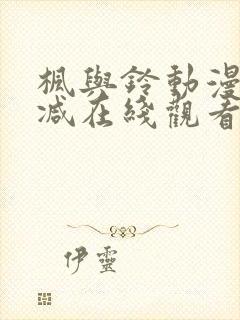 楓與鈴動漫
减在綫觀看
伊靈